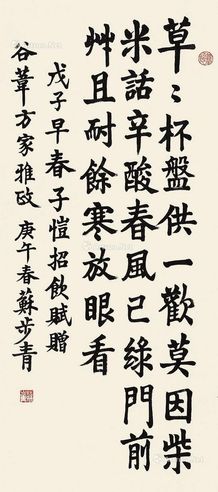 草〻杯盤供一歡莫因柴
米話辛酸春風已綠門前
艸且耐餘寒放眼看
戊子早春子愷招飲賦贈
谷葦方家雅政 庚午春蘇步青